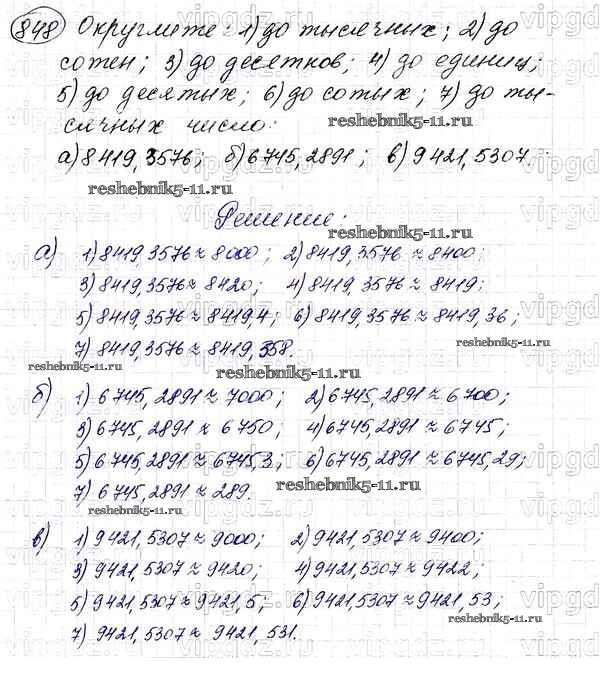 848 Округлите: 1) до тысячных; 2) до
сотен; 3) до десятков; 4) до единиц;
5) до десятых; 6) до сотых; 7) до ты-
сячных число:
reshebnik5-11.ru
а) 8419,3576; б) 6745,2891; в) 9421,5307.
reshebnik5-11.ru
Решение:
reshebnik5-11.ru
а) 1) 8419,3576 ≈ 8000; 2) 8419,3576 ≈ 8400;
3) 8419,3576 ≈ 8420; 4) 8419,3576 ≈ 8419;
5) 8419,3576 ≈ 8419,4; 6) 8419,3576 ≈ 8419,36;
7) 8419,3576 ≈ 8419,358.
reshebnik5-11.ru
reshebnik5-11.ru
reshebnik5-11.ru
б) 1) 6745,2891 ≈ 7000; 2) 6745,2891 ≈ 6700;
3) 6745,2891 ≈ 6750; 4) 6745,2891 ≈ 6745;
5) 6745,2891 ≈ 6745,3; 6) 6745,2891 ≈ 6745,29;
7) 6745,2891 ≈ 289.
reshebnik5-11.ru
reshebnik5-11.ru
в) 1) 9421,5307 ≈ 9000; 2) 9421,5307 ≈ 9400;
3) 9421,5307 ≈ 9420; 4) 9421,5307 ≈ 9422;
5) 9421,5307 ≈ 9421,5; 6) 9421,5307 ≈ 9421,53;
7) 9421,5307 ≈ 9421,531.
reshebnik5-11.ru
reshebnik5-11.ru